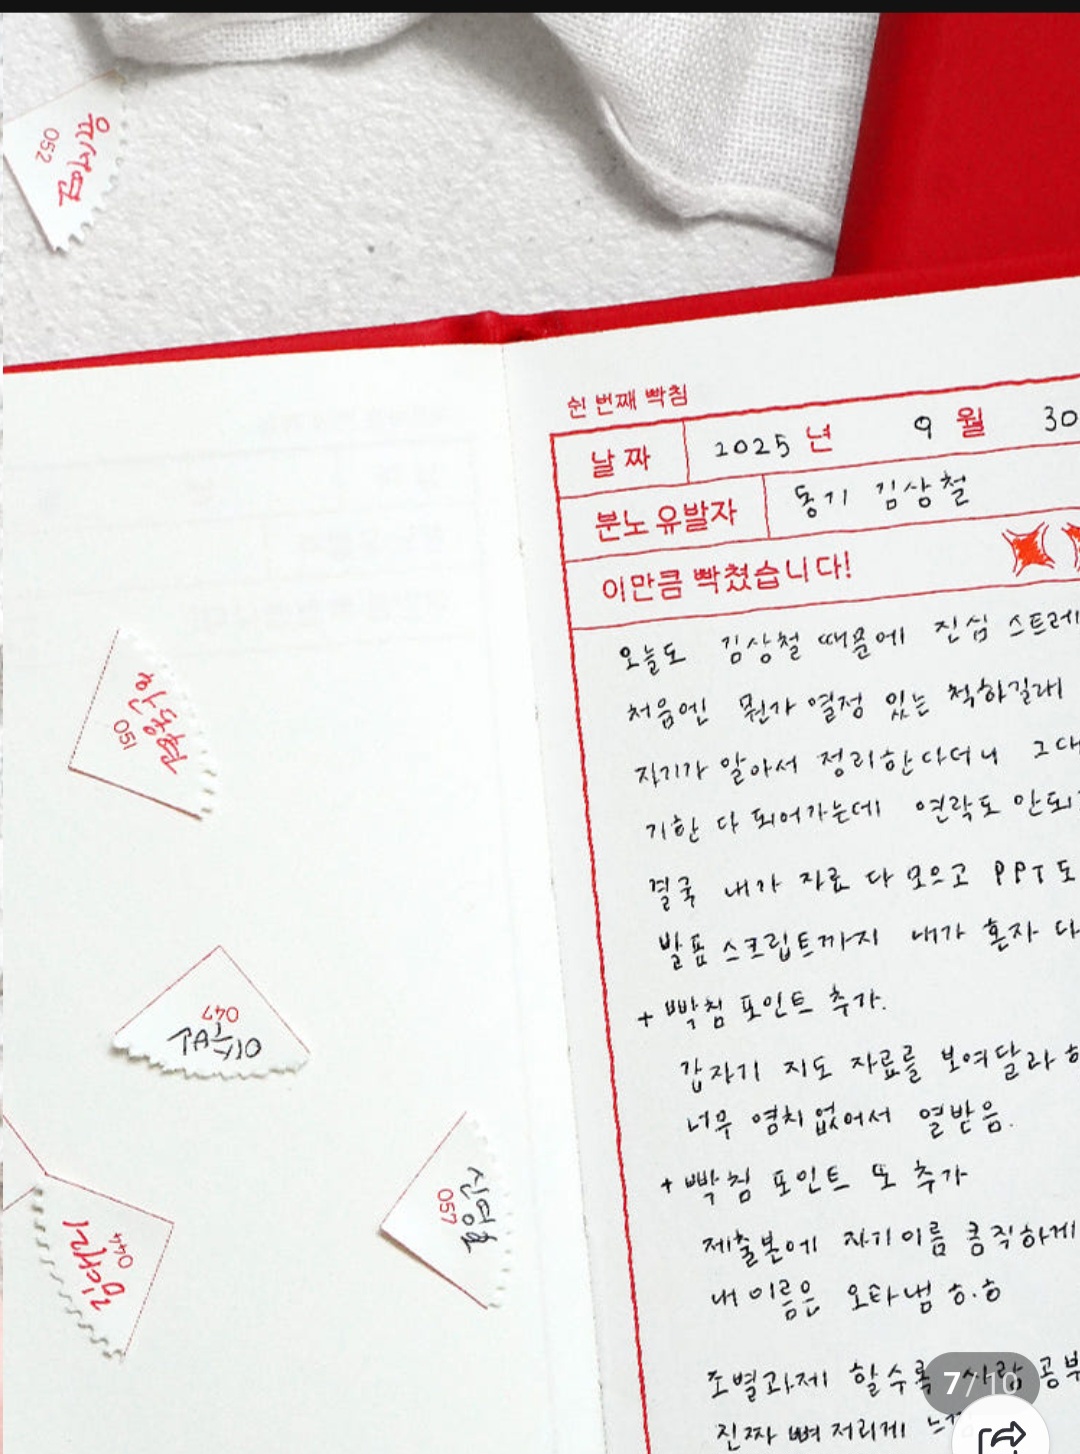 052
쉰 번째 빡침
날짜 2025 년 9 월 30
분노 유발자 동기 김상철
이만큼 빡쳤습니다!
오늘도 김상철 때문에 진심 스트레
처음엔 뭔가 열정 있는 척하길래
자기가 알아서 정리한다더니 그대
기한 다 되어가는데 연락도 안되
결국 내가 자료 다 모으고 PPT도
발표 스크립트까지 내가 혼자 다
+ 빡침 포인트 추가.
갑자기 지도 자료를 보여달라 하
너무 염치없어서 열받음.
+ 빡침 포인트 또 추가
제출본에 자기 이름 큼직하게
내 이름은 오타냄 ㅎ.ㅎ
조별과제 할수록 사람 공부
진짜 뼈저리게 느
150
047
신영호
057
김대리
044
7/10